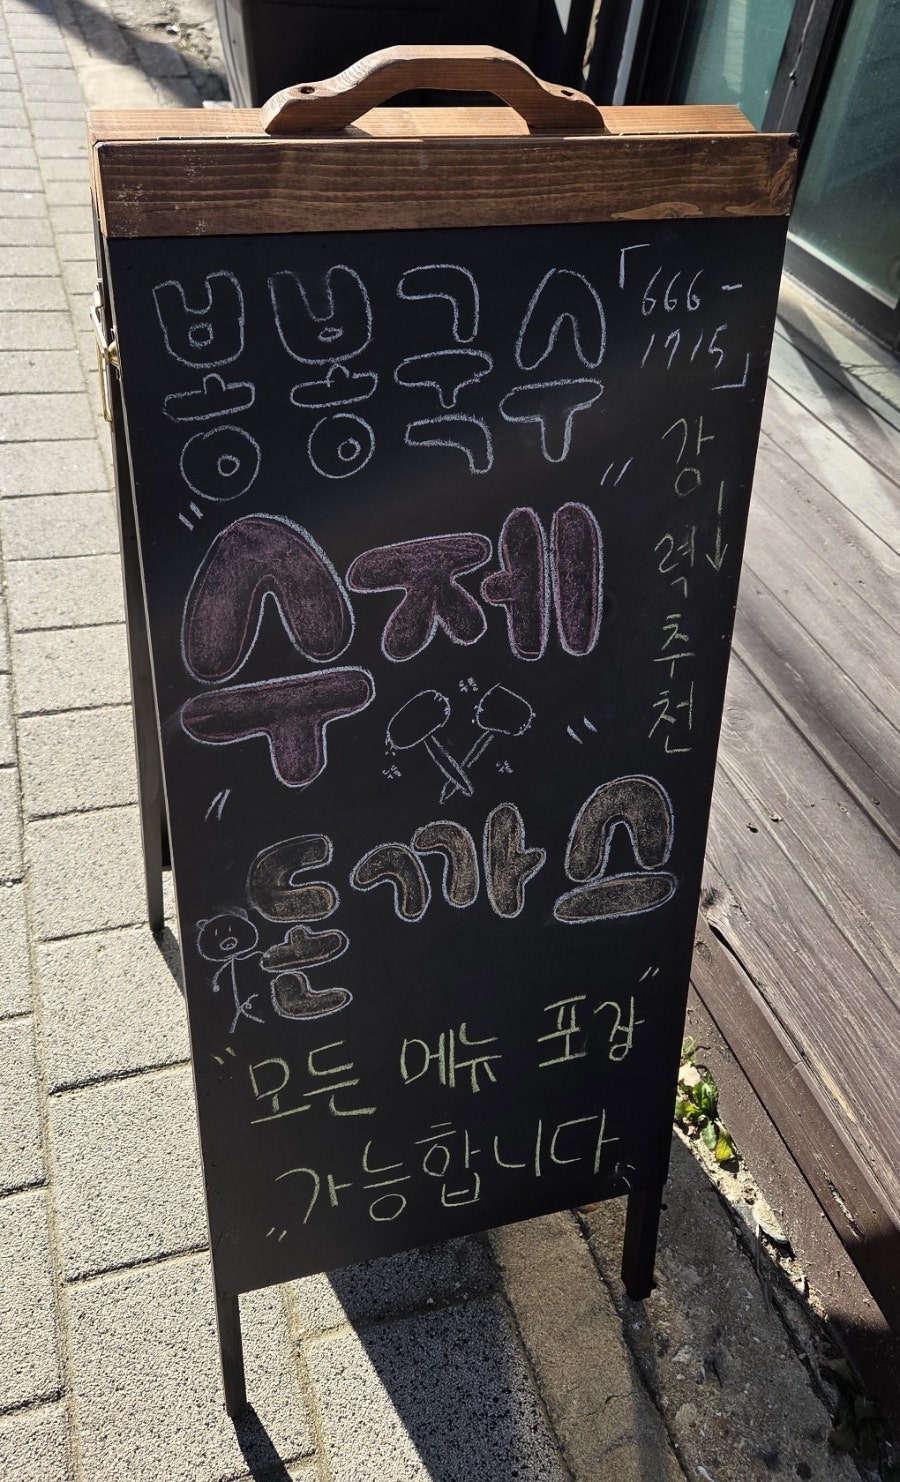 봉봉국수
「666-
1715」
강력추천
"수제"
"돈까스"
"모든 메뉴 포장
가능합니다"